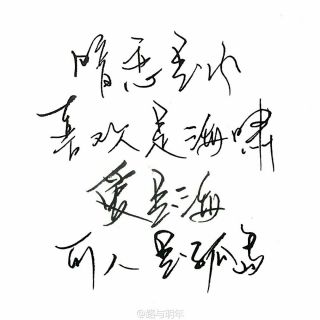 暗恋是水
喜欢是海啸
爱是海
可人是孤岛
@超与明年